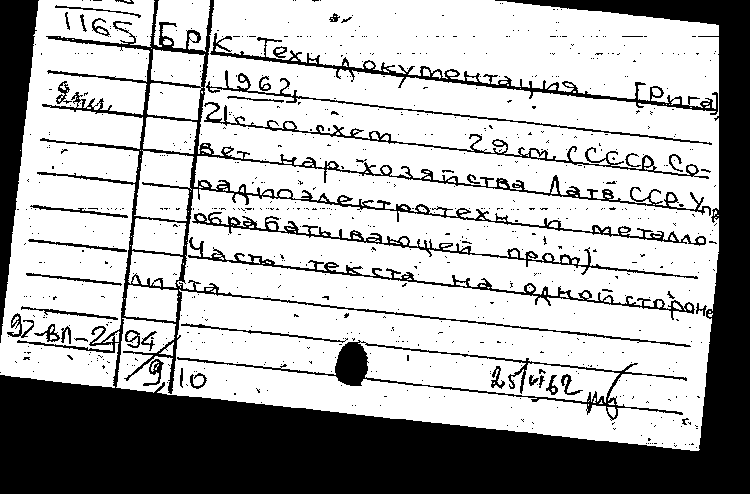 1165
БРК. Техн. документация. [Рига]
1962.
21 с. со схем 29 см. (СССР. Со-
вет нар. хозяйства Латв. ССР. Упр
радиоэлектротехн. и металло-
обрабатывающей пром).
Часть текста на одной стороне
листа.
92-ВП-24 94
9,10
25/VI 62